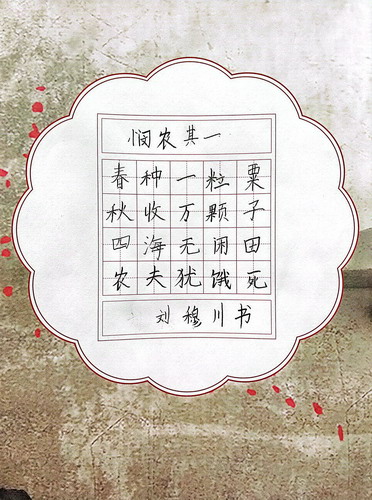 悯农其一
春种一粒粟
秋收万颗子
四海无闲田
农夫犹饿死
刘穆川书